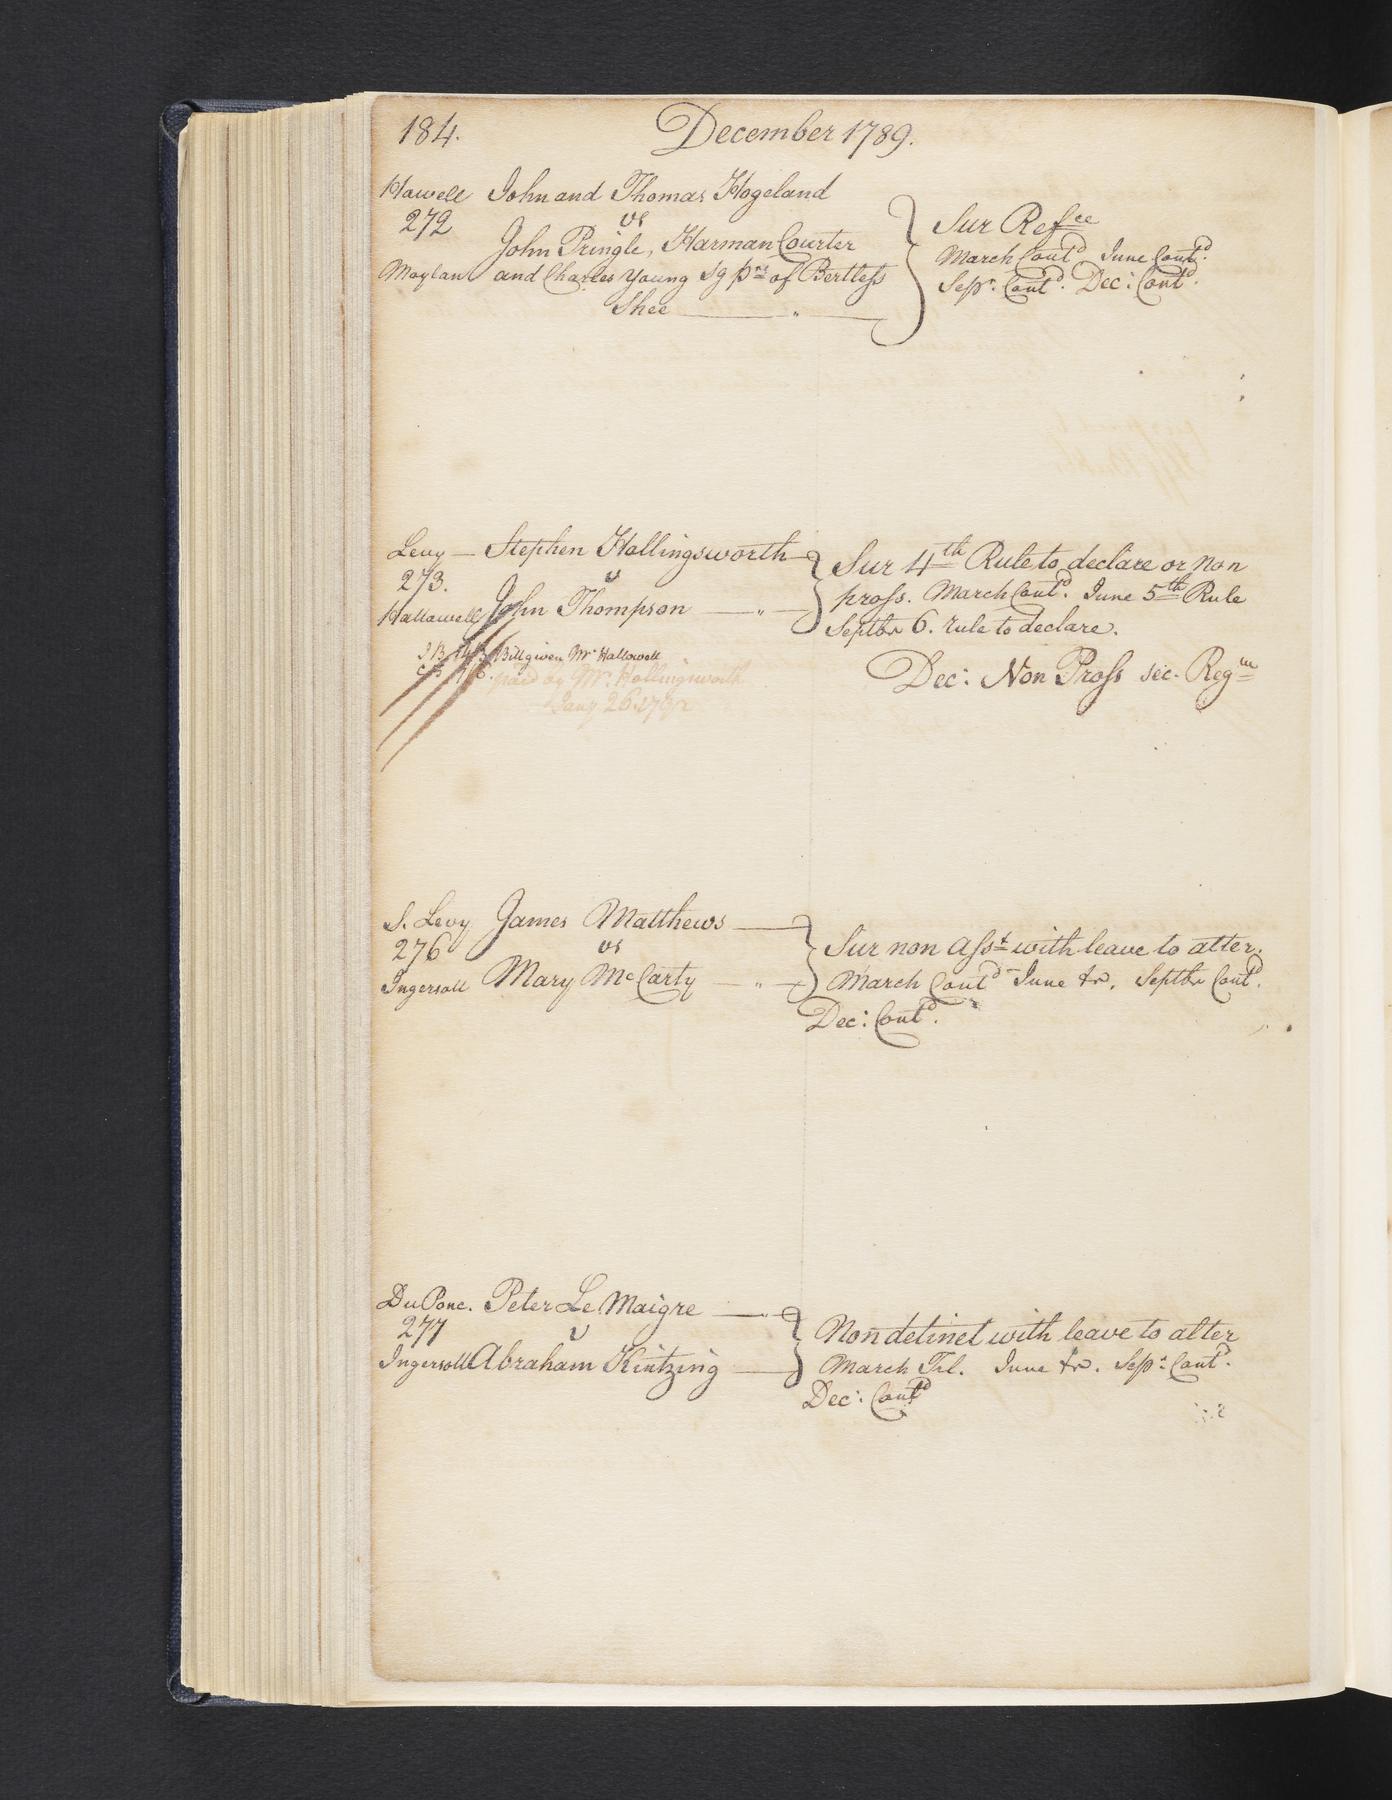 184.
December 1789.
Hawell John and Thomas Hogeland
272 vs
John Pringle, Harman Courter
Moylan and Charles Young Sg prs of Bertless
Shee
Sur Refce
March Contd. June Contd.
Sepr. Contd. Dec: Contd.
Levy — Stephen Hollingsworth
273. v
Hallowell John Thompson
Sur 4th Rule to declare or Non
pross. March Contd. June 5th Rule
Septbr 6. rule to declare.
Dec: Non Pross sec. Regm
Bill given Mr Hallowell
paid by Mr. Hollingsworth
Jany 26.
S. Levy James Matthews
276 vs
Ingersoll Mary McCarty
Sur non Asst with leave to alter.
March Contd June tr. Septbr Contd.
Dec: Contd.
DuPonc. Peter Le Maigre
277 v
Ingersoll Abraham Kintzing
Non detinet with leave to alter
March Trl. June tr. Sepr. Contd.
Dec: Contd